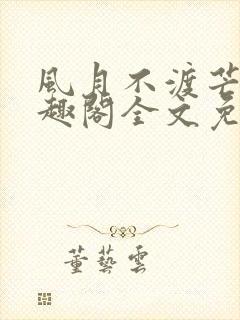 風月不渡芒
趣閣全文免
董藝雲